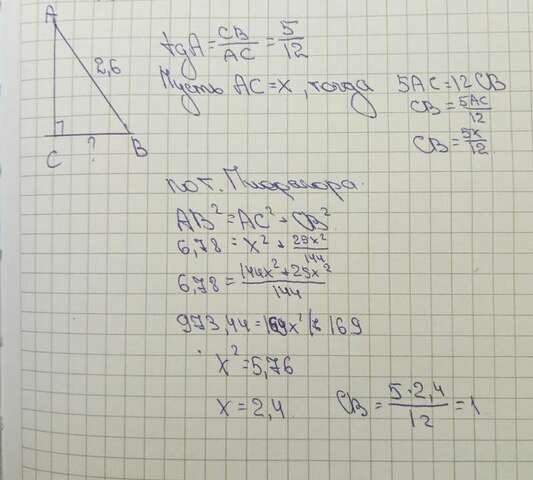 A
2,6
C
?
B
tgA = CB/AC = 5/12
Пусть AC = x, тогда 5AC = 12CB
CB = 5AC/12
CB = 5x/12
по т. Пифагора.
AB² = AC² + CB²
6,78 = x² + 25x²/144
6,78 = 144x² + 25x²/144
973,44 = 169x² |: 169
x² = 5,76
x = 2,4
CB = 5·2,4/12 = 1